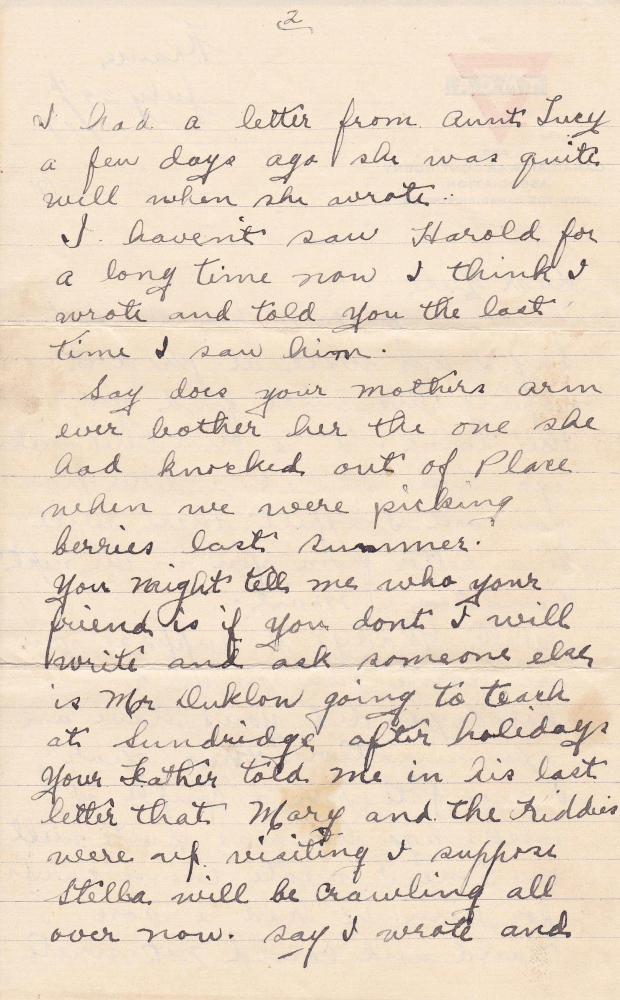 2
I had a letter from Aunt Lucy
a few days ago she was quite
well when she wrote.
I haven't saw Harold for
a long time now I think I
wrote and told you the last
time I saw him.
Say does your mothers arm
ever bother her the one she
had knocked out of Place
when we were picking
berries last summer.
You might tell me who your
friend is if you dont I will
write and ask someone else
is Mr Duklow going to teach
at Sundridge after holidays
Your Father told me in his last
letter that Mary and the Kiddies
were up visiting I suppose
Stella will be crawling all
over now. say I wrote and